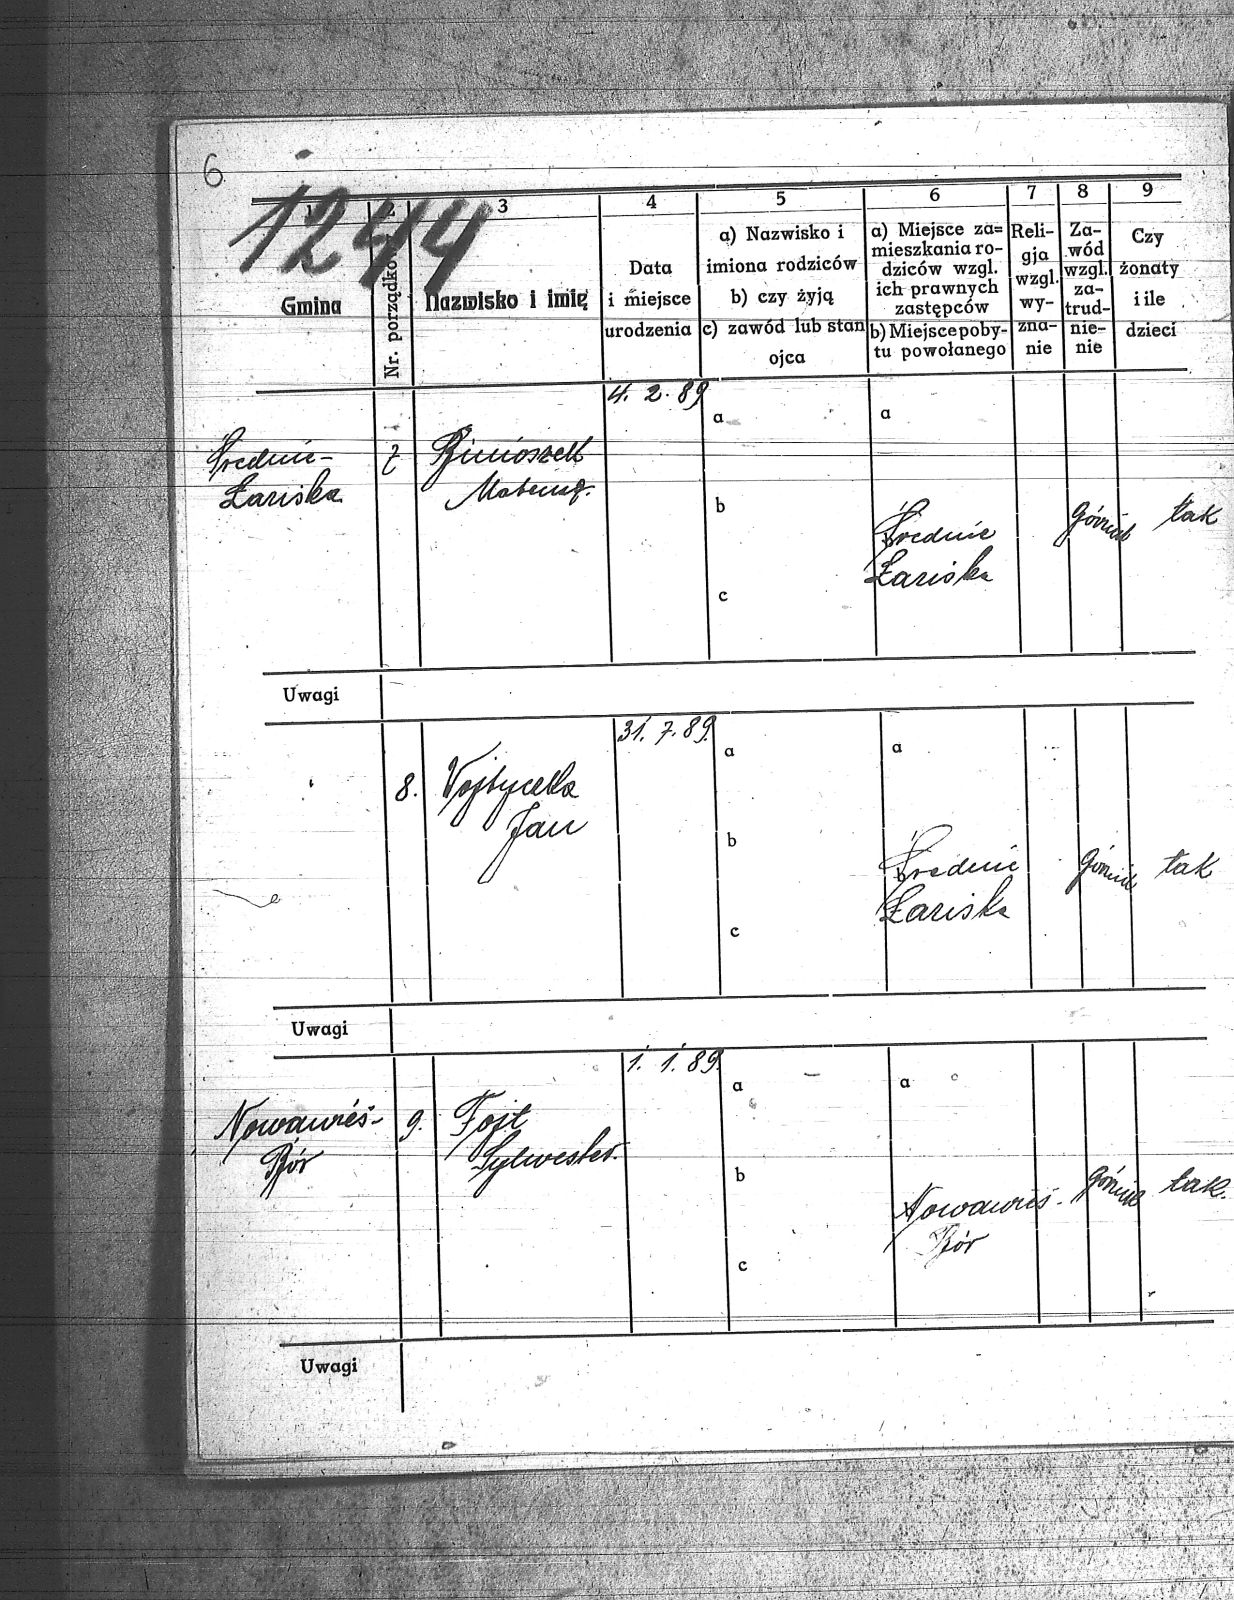 6
1244
3 4 5 6 7 8 9
Gmina
Nr. porządko
Nazwisko i imię
Data
i miejsce
urodzenia
a) Nazwisko i
imiona rodziców
b) czy żyją
c) zawód lub stan
ojca
a) Miejsce za=
mieszkania ro-
dziców wzgl.
ich prawnych
zastępców
b) Miejsce poby-
tu powołanego
Reli-
gja
wzgl.
wy-
zna-
nie
Za-
wód
wzgl.
za-
trud-
nie-
nie
Czy
żonaty
i ile
dzieci
4. 2. 89
a a
Średnie-
Łaziska
7
b
Średnie
Łaziska
górnik
tak
c
Uwagi
31. 7. 89.
a a
8.
Jan
b
Średnie
Łaziska
górnik
tak
c
Uwagi
1. 1. 89.
a a
Nowawieś-
Bór
9.
Fojt
Sylwester.
b
Nowawieś-
Bór
górnik
tak.
c
Uwagi